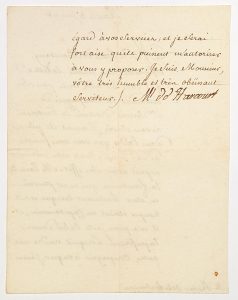 egard à vos services, et je serai
fort aise qu'ils puissent m'autoriser
à vous y proposer. Je suis Monsieur,
vôtre très humble et très obéissant
Serviteur /. M. d'Harcourt